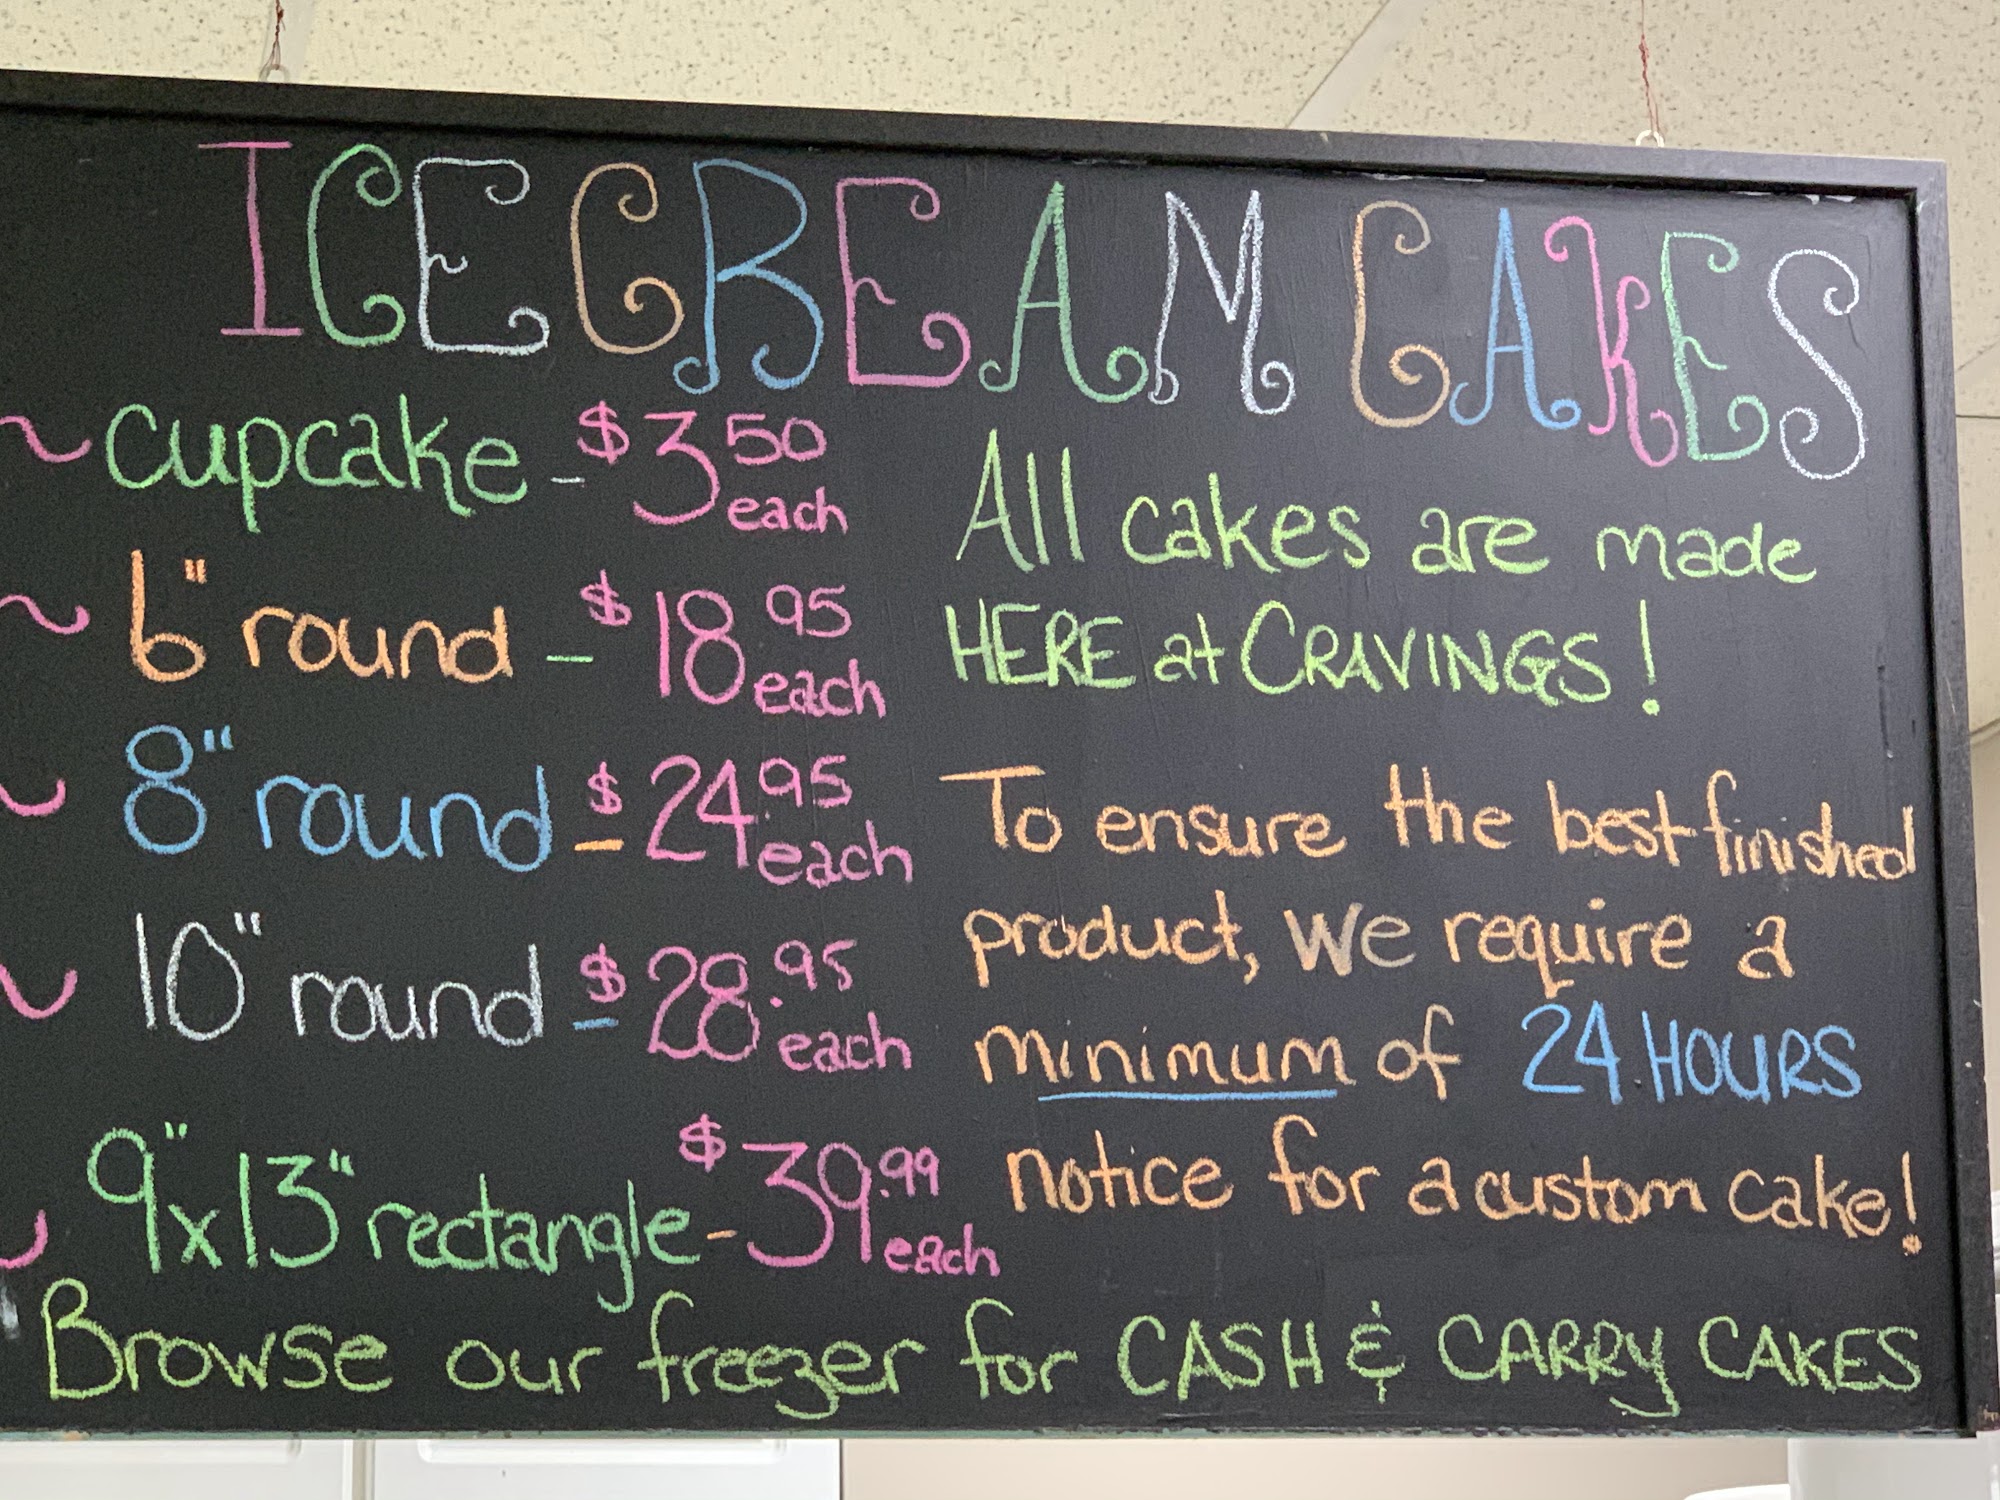 ICE CREAM CAKES
~ cupcake - $3.50 each
~ 6" round - $18.95 each
~ 8" round - $24.95 each
~ 10" round - $28.95 each
~ 9"x13" rectangle - $39.99 each
All cakes are made
HERE at CRAVINGS!
To ensure the best finished
product, we require a
minimum of 24 HOURS
notice for a custom cake!
Browse our freezer for CASH & CARRY CAKES